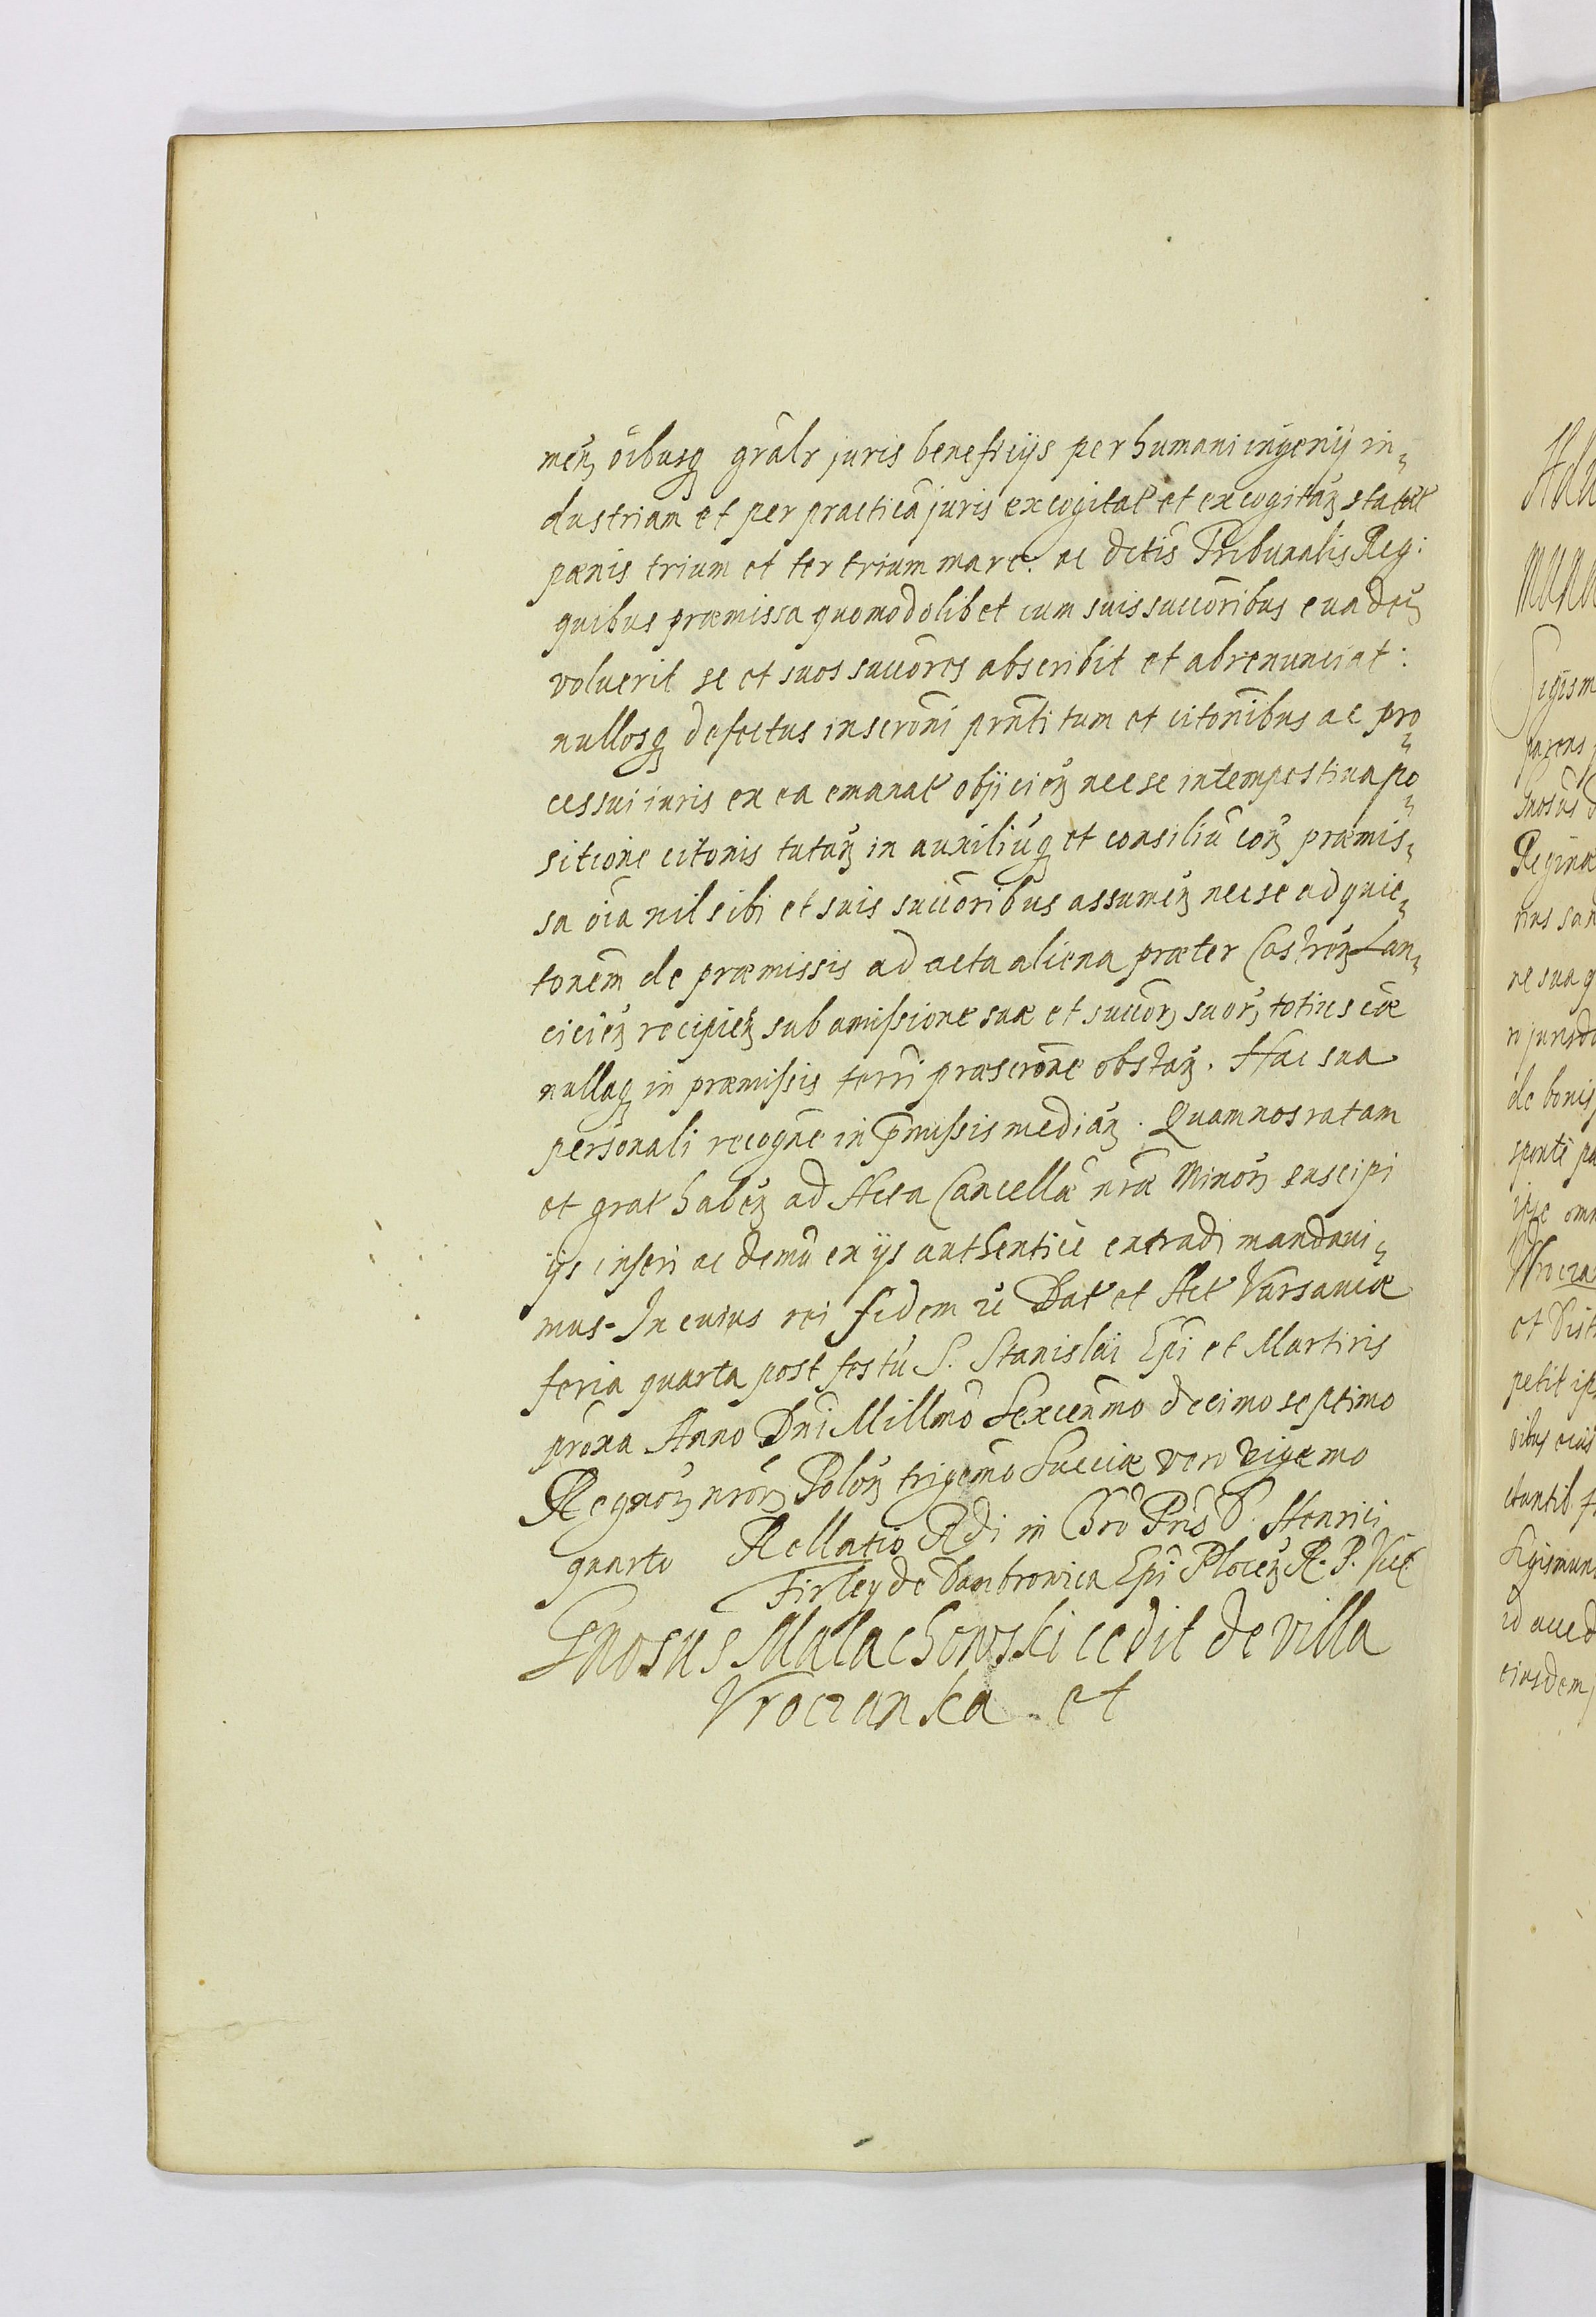 meń oibusq gralr juris beneficijs per humani ingenij in-
dustriam et per practicā juris excogitat et excogitań statut
pænis trium et ter trium marc. ac dctis Tribunalis Reg:
quibus præmissa quomodolibet cum suis succoribus euadeń
voluerit se et suos succores abscribit et abrenunciat:
nullosq defectus inscroni prnti tum et citonibus ac pro-
cessui iuris ex ea emanat objicień nec se intempestiua po-
sitione citonis tutań in auxiliūq et consiliū eoń præmis-
sa oia nil sibi et suis succoribus assumeń nec se ad quie-
tonem de præmissis ad acta aliena præter Castreń Lan-
cicień recipień sub amissione suæ et succoru suoru totius cæ
nullaq in præmissis terri præscrone obstań. Hac sua
personali recogne in pmissis mediań. Quam nos ratam
et grat habeń ad Acta Cancellæ nræ Minoru suscipi
ijs inseri ac demū ex ijs authentice extradi mandaui-
mus. In cuius rei fidem rc Dat et Act Varsauiæ
feria quarta post festū S. Stanislai Epi et Martiris
proxa Anno Dni Millmo Sexcenmo decimo septimo
Regnoru nroru Poloń trigemo Sueciæ vero vigemo
quarto Rellatio Rdi in Chro Pris D. Henrici
Firley de Dambrowica Epi Ploceń R. P. Vict
Gnosus Malachowski cedit de villa
Vroczanka et
Sigism
Regina
ne sua q
de bonis
sponte pa
petit ips
Sigismun
eiusdem